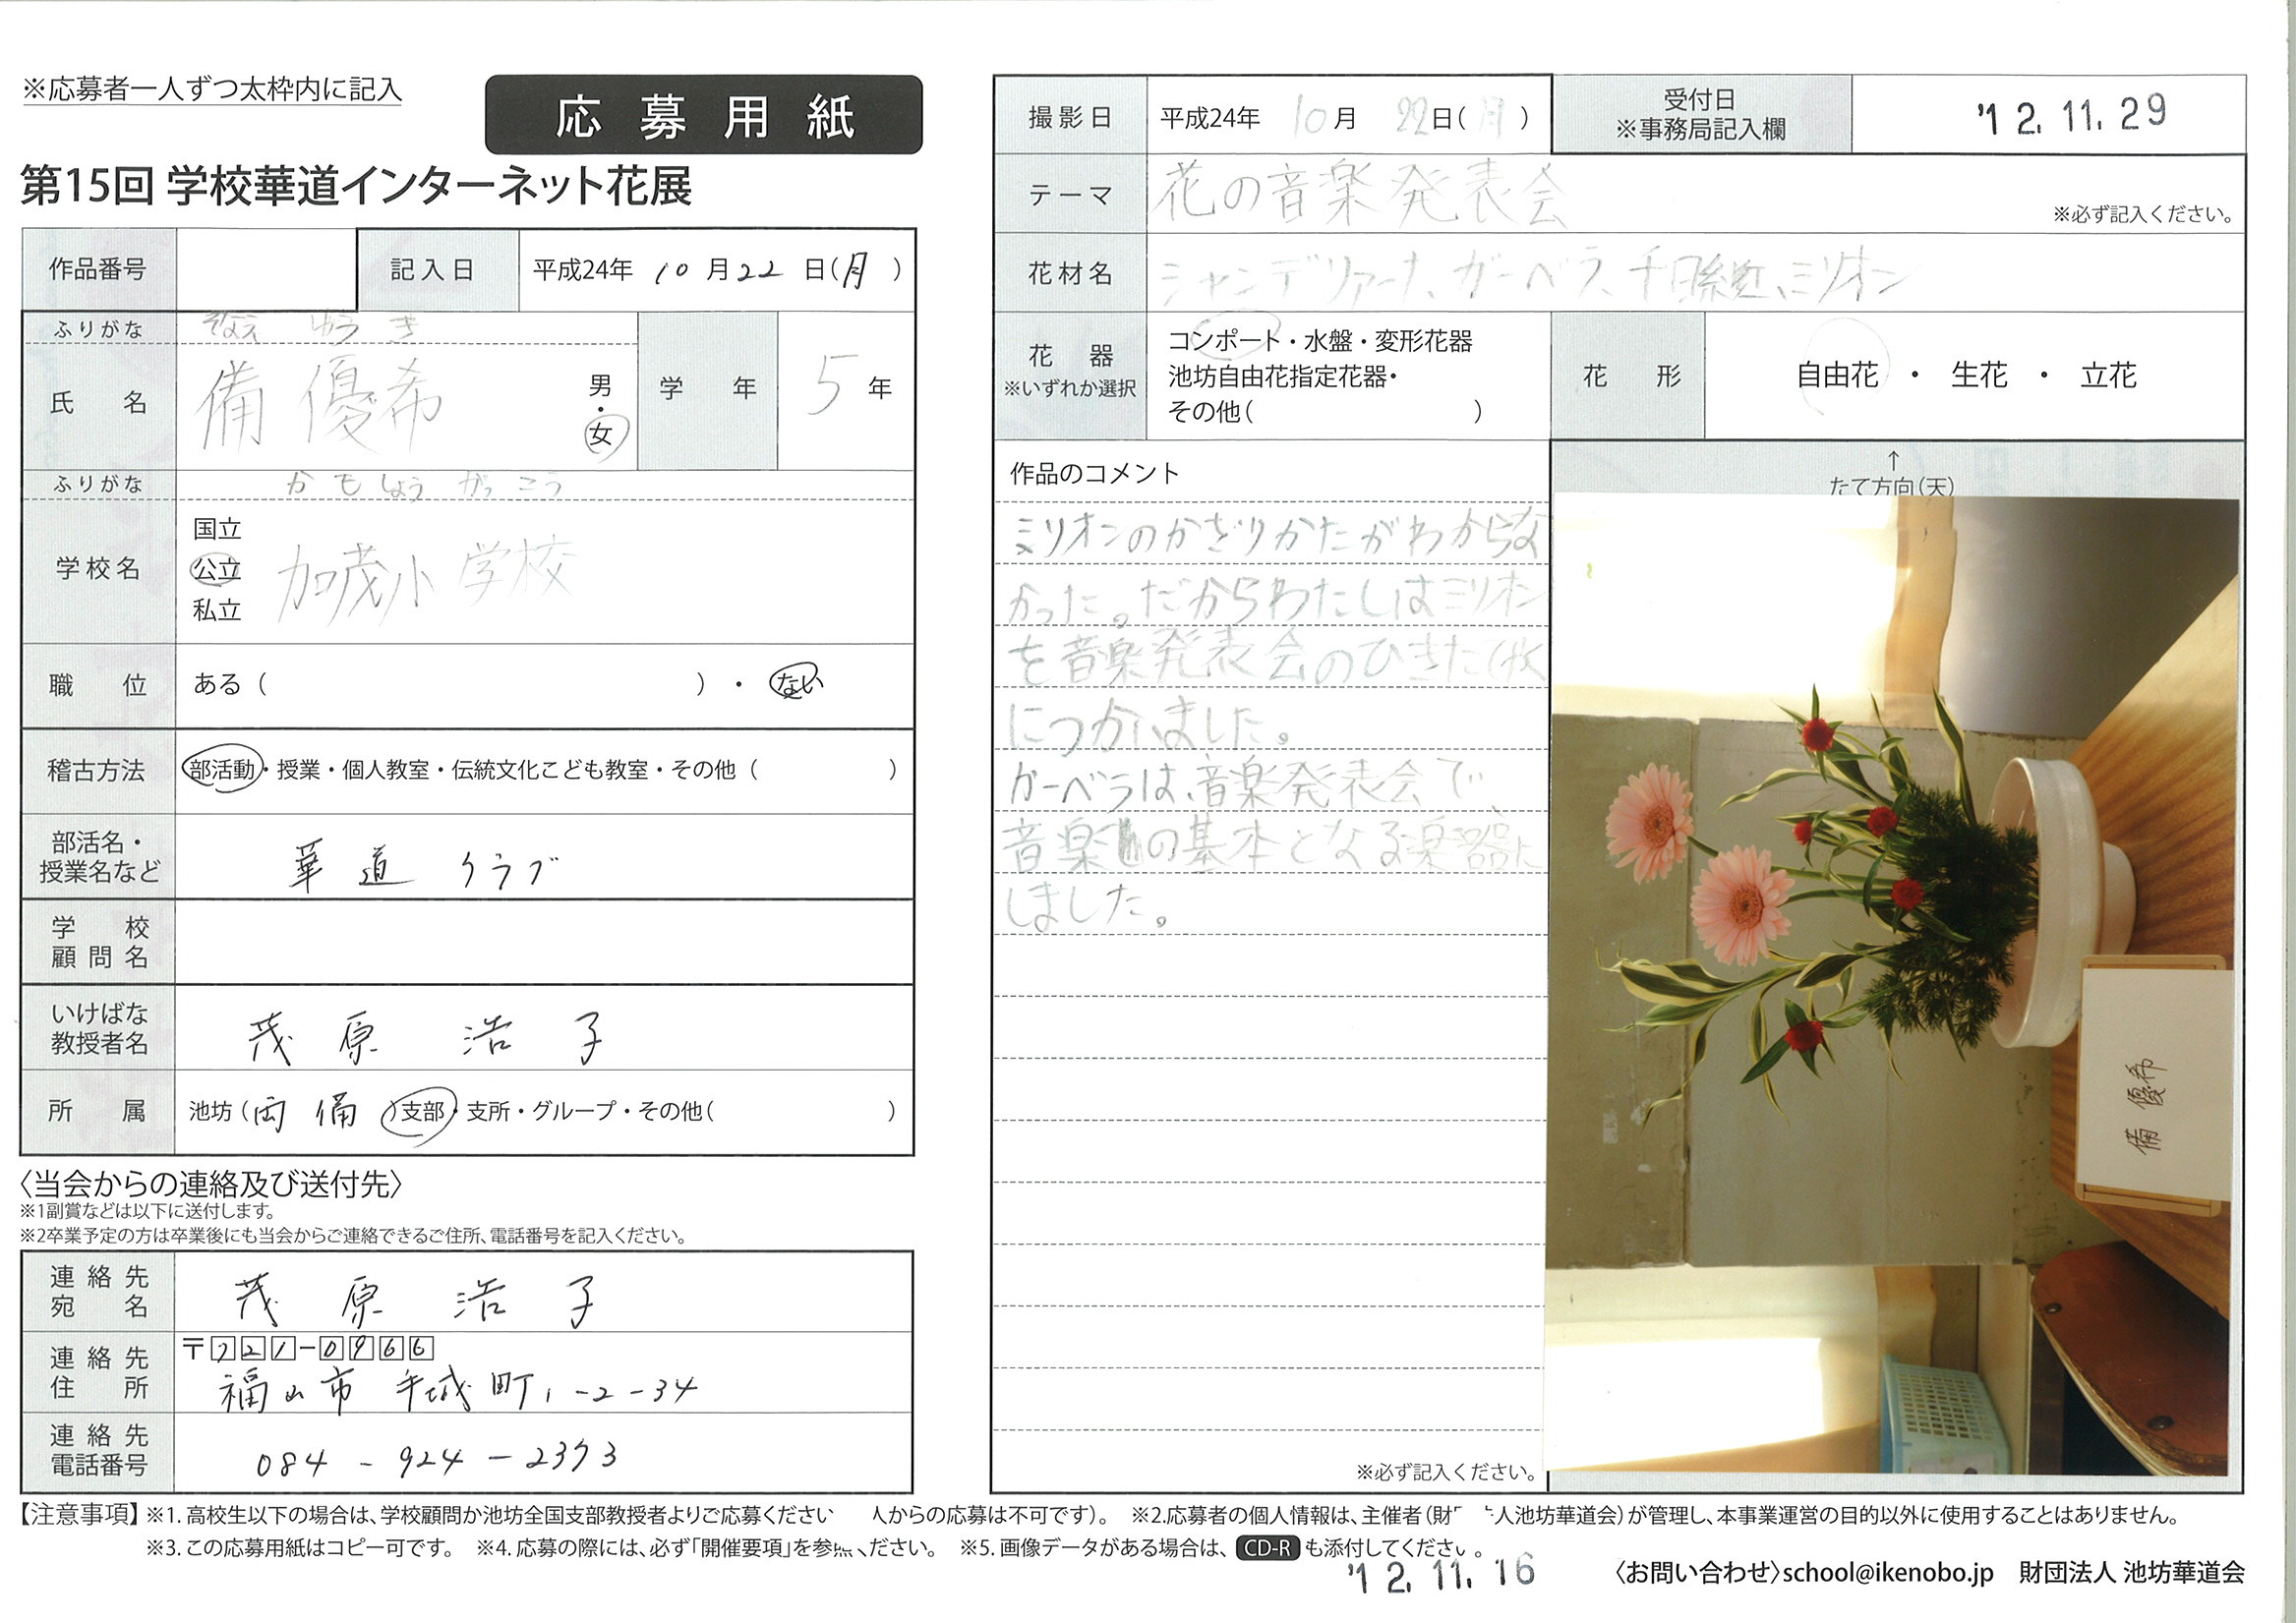 ※応募者一人ずつ太枠内に記入
応募用紙
第15回 学校華道インターネット花展
作品番号
記入日 平成24年 10月22日(月)
ふりがな そなえ ゆうき
氏名 備 優希 男・女
学年 5年
ふりがな かもしょうがっこう
学校名 国立 公立 私立 加茂小学校
職位 ある( )・ない
稽古方法 部活動・授業・個人教室・伝統文化こども教室・その他( )
部活名・授業名など 華道クラブ
学校顧問名
いけばな教授者名 茂原 浩子
所属 池坊(両備)支部・支所・グループ・その他( )
〈当会からの連絡及び送付先〉
※1副賞などは以下に送付します。
※2卒業予定の方は卒業後にも当会からご連絡できるご住所、電話番号を記入ください。
連絡先宛名 茂原 浩子
連絡先住所 〒721-0966
福山市 手城町1-2-34
連絡先電話番号 084-924-2373
撮影日 平成24年 10月 22日(月)
受付日 ※事務局記入欄 '12.11.29
テーマ 花の音楽発表会
※必ず記入ください。
花材名 ガーベラ、千日紅、ミリオン
花器 ※いずれか選択
コンポート・水盤・変形花器
池坊自由花指定花器・
その他( )
花形 自由花・生花・立花
作品のコメント
ミリオンのかざりかたがわからな
かった。だからわたしはミリオン
を音楽発表会のひきたて役
につかいました。
ガーベラは、音楽発表会で、
音楽の基本となる楽器に
しました。
※必ず記入ください。
↑
たて方向(天)
備 優希
【注意事項】※1. 高校生以下の場合は、学校顧問か池坊全国支部教授者よりご応募ください 人からの応募は不可です)。 ※2.応募者の個人情報は、主催者(財 人池坊華道会)が管理し、本事業運営の目的以外に使用することはありません。
※3. この応募用紙はコピー可です。 ※4. 応募の際には、必ず「開催要項」を参 ください。 ※5. 画像データがある場合は、CD-Rも添付してください。
'12.11.16
〈お問い合わせ〉school@ikenobo.jp 財団法人 池坊華道会